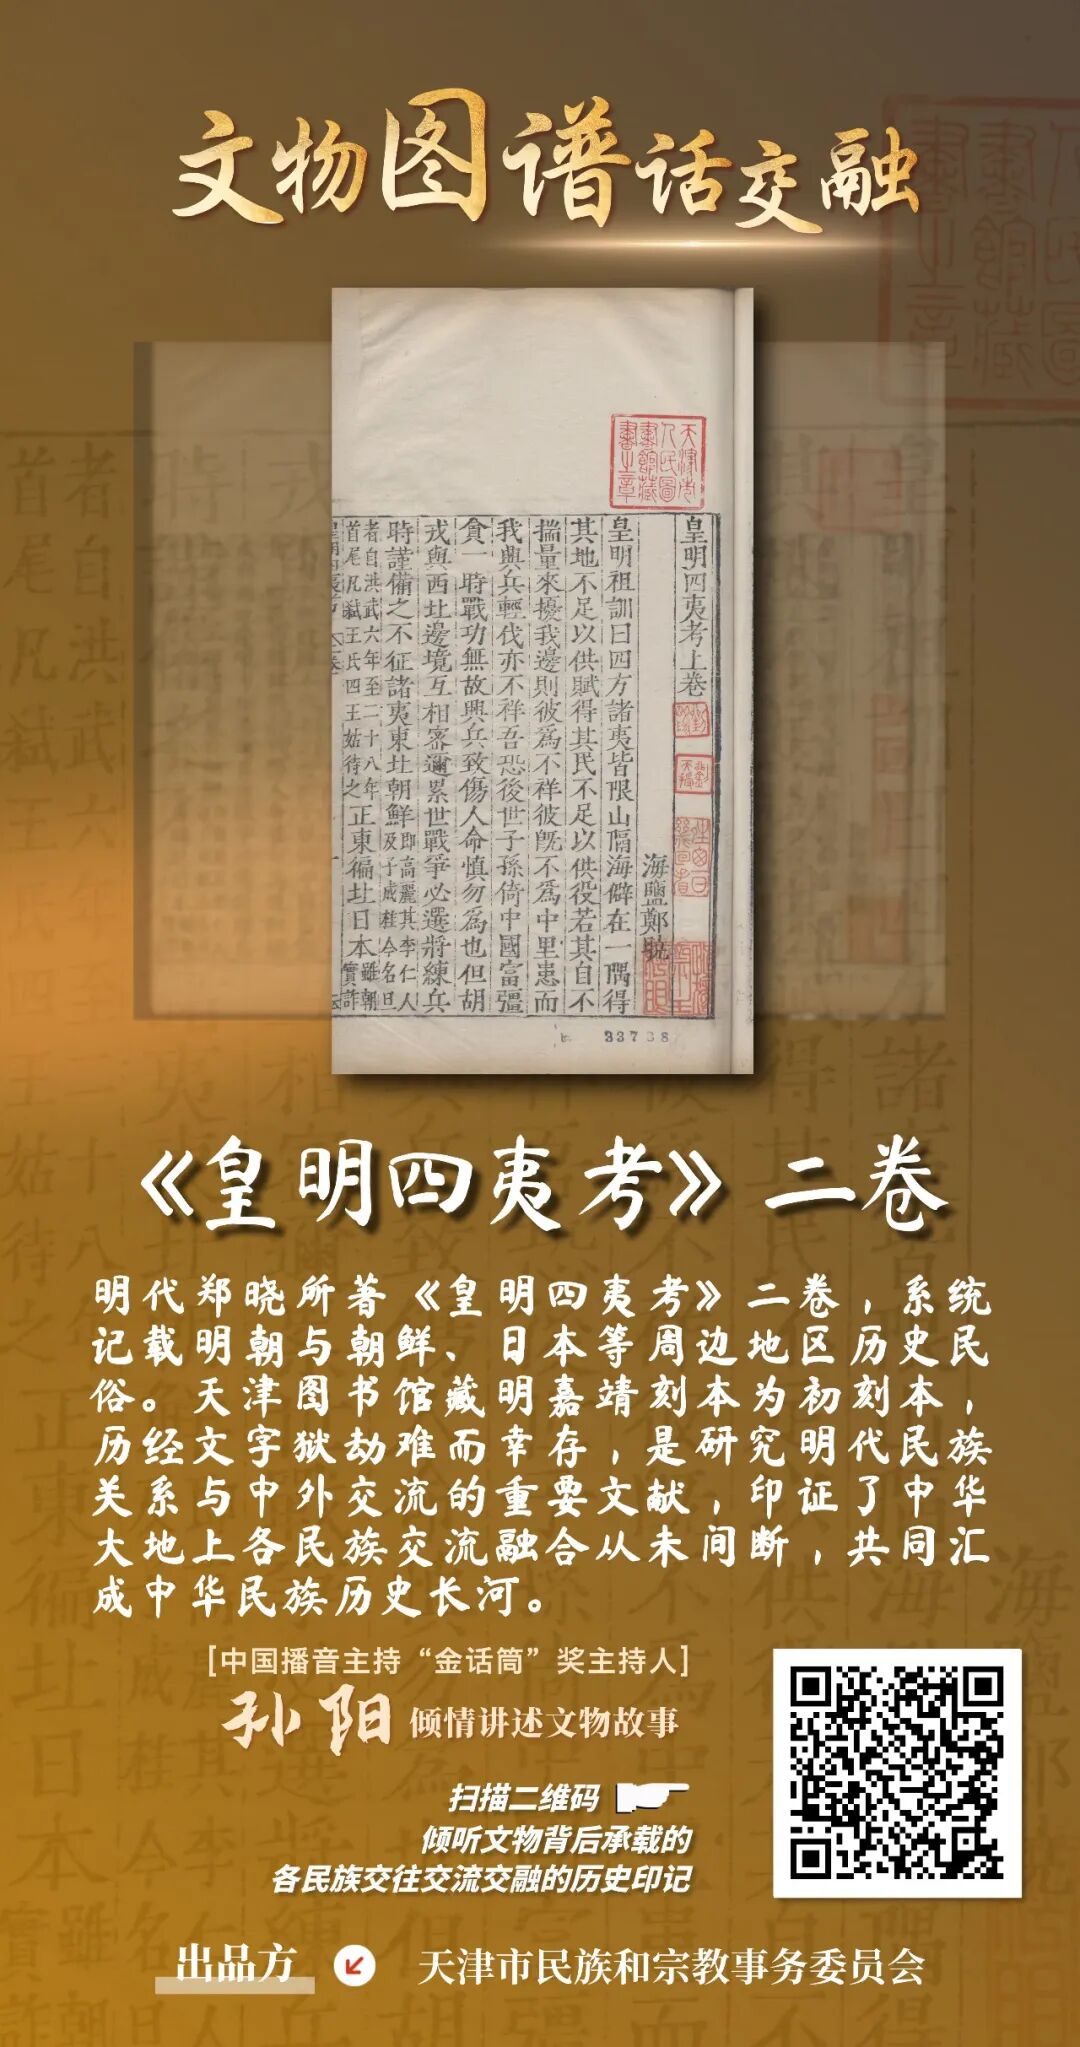 文物图谱话交融
天津市
人民圖
書館藏
書之章
皇明四夷考上卷
海鹽鄭曉
皇明祖訓曰四方諸夷皆限山隔海僻在一隅得
其地不足以供賦得其民不足以供役若其自不
揣量來擾我邊則彼爲不祥彼旣不爲中里患而
我興兵輕伐亦不祥吾恐後世子孫倚中國富彊
貪一時戰功無故興兵致傷人命愼勿爲也但胡
戎與西北邊境互相密邇累世戰爭必選將練兵
時謹備之不征諸夷東北朝鮮即高麗其李仁人
及子成桂今名旦
者自洪武六年至二十八年
首尾凡弑王氏四王姑待之
正東徧北日本雖朝
實詐
33738
《皇明四夷考》二卷
明代郑晓所著《皇明四夷考》二卷，系统
记载明朝与朝鲜、日本等周边地区历史民
俗。天津图书馆藏明嘉靖刻本为初刻本，
历经文字狱劫难而幸存，是研究明代民族
关系与中外交流的重要文献，印证了中华
大地上各民族交流融合从未间断，共同汇
成中华民族历史长河。
[中国播音主持“金话筒”奖主持人]
孙阳 倾情讲述文物故事
扫描二维码
倾听文物背后承载的
各民族交往交流交融的历史印记
出品方 天津市民族和宗教事务委员会